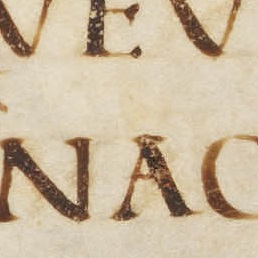 VEV
NAC